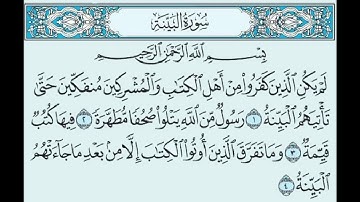 سُورَةُ البَيِّنَةِ
بِسْمِ اللَّهِ الرَّحْمَٰنِ الرَّحِيمِ
لَمْ يَكُنِ الَّذِينَ كَفَرُوا مِنْ أَهْلِ الْكِتَابِ وَالْمُشْرِكِينَ مُنفَكِّينَ حَتَّىٰ
تَأْتِيَهُمُ الْبَيِّنَةُ ١ رَسُولٌ مِّنَ اللَّهِ يَتْلُوا صُحُفًا مُّطَهَّرَةً ٢ فِيهَا كُتُبٌ
قَيِّمَةٌ ٣ وَمَا تَفَرَّقَ الَّذِينَ أُوتُوا الْكِتَابَ إِلَّا مِن بَعْدِ مَا جَاءَتْهُمُ
الْبَيِّنَةُ ٤